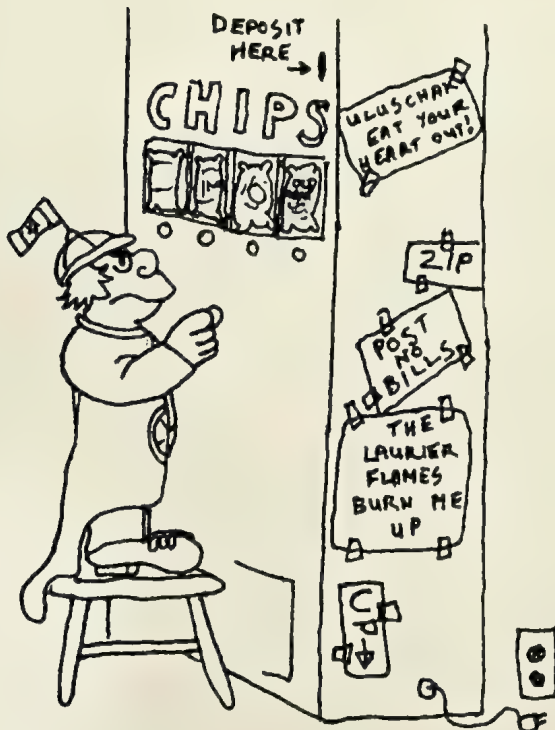 DEPOSIT
HERE →
CHIPS
ULUSCHAK
EAT YOUR
HEART OUT!
ZIP
POST
NO
BILLS
THE
LAURIER
FLAMES
BURN ME
UP
C